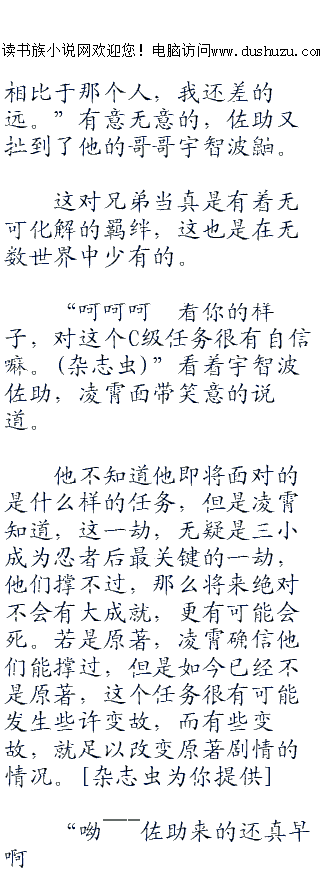 读书族小说网欢迎您！电脑访问www.dushuzu.com
相比于那个人，我还差的
远。”有意无意的，佐助又
扯到了他的哥哥宇智波鼬。
这对兄弟当真是有着无
可化解的羁绊，这也是在无
数世界中少有的。
“呵呵呵　看你的样
子，对这个C级任务很有自信
嘛。(杂志虫)”看着宇智波
佐助，凌霄面带笑意的说
道。
他不知道他即将面对的
是什么样的任务，但是凌霄
知道，这一劫，无疑是三小
成为忍者后最关键的一劫，
他们撑不过，那么将来绝对
不会有大成就，更有可能会
死。若是原著，凌霄确信他
们能撑过，但是如今已经不
是原著，这个任务很有可能
发生些许变故，而有些变
故，就足以改变原著剧情的
情况。[杂志虫为你提供]
“呦￣￣佐助来的还真早
啊